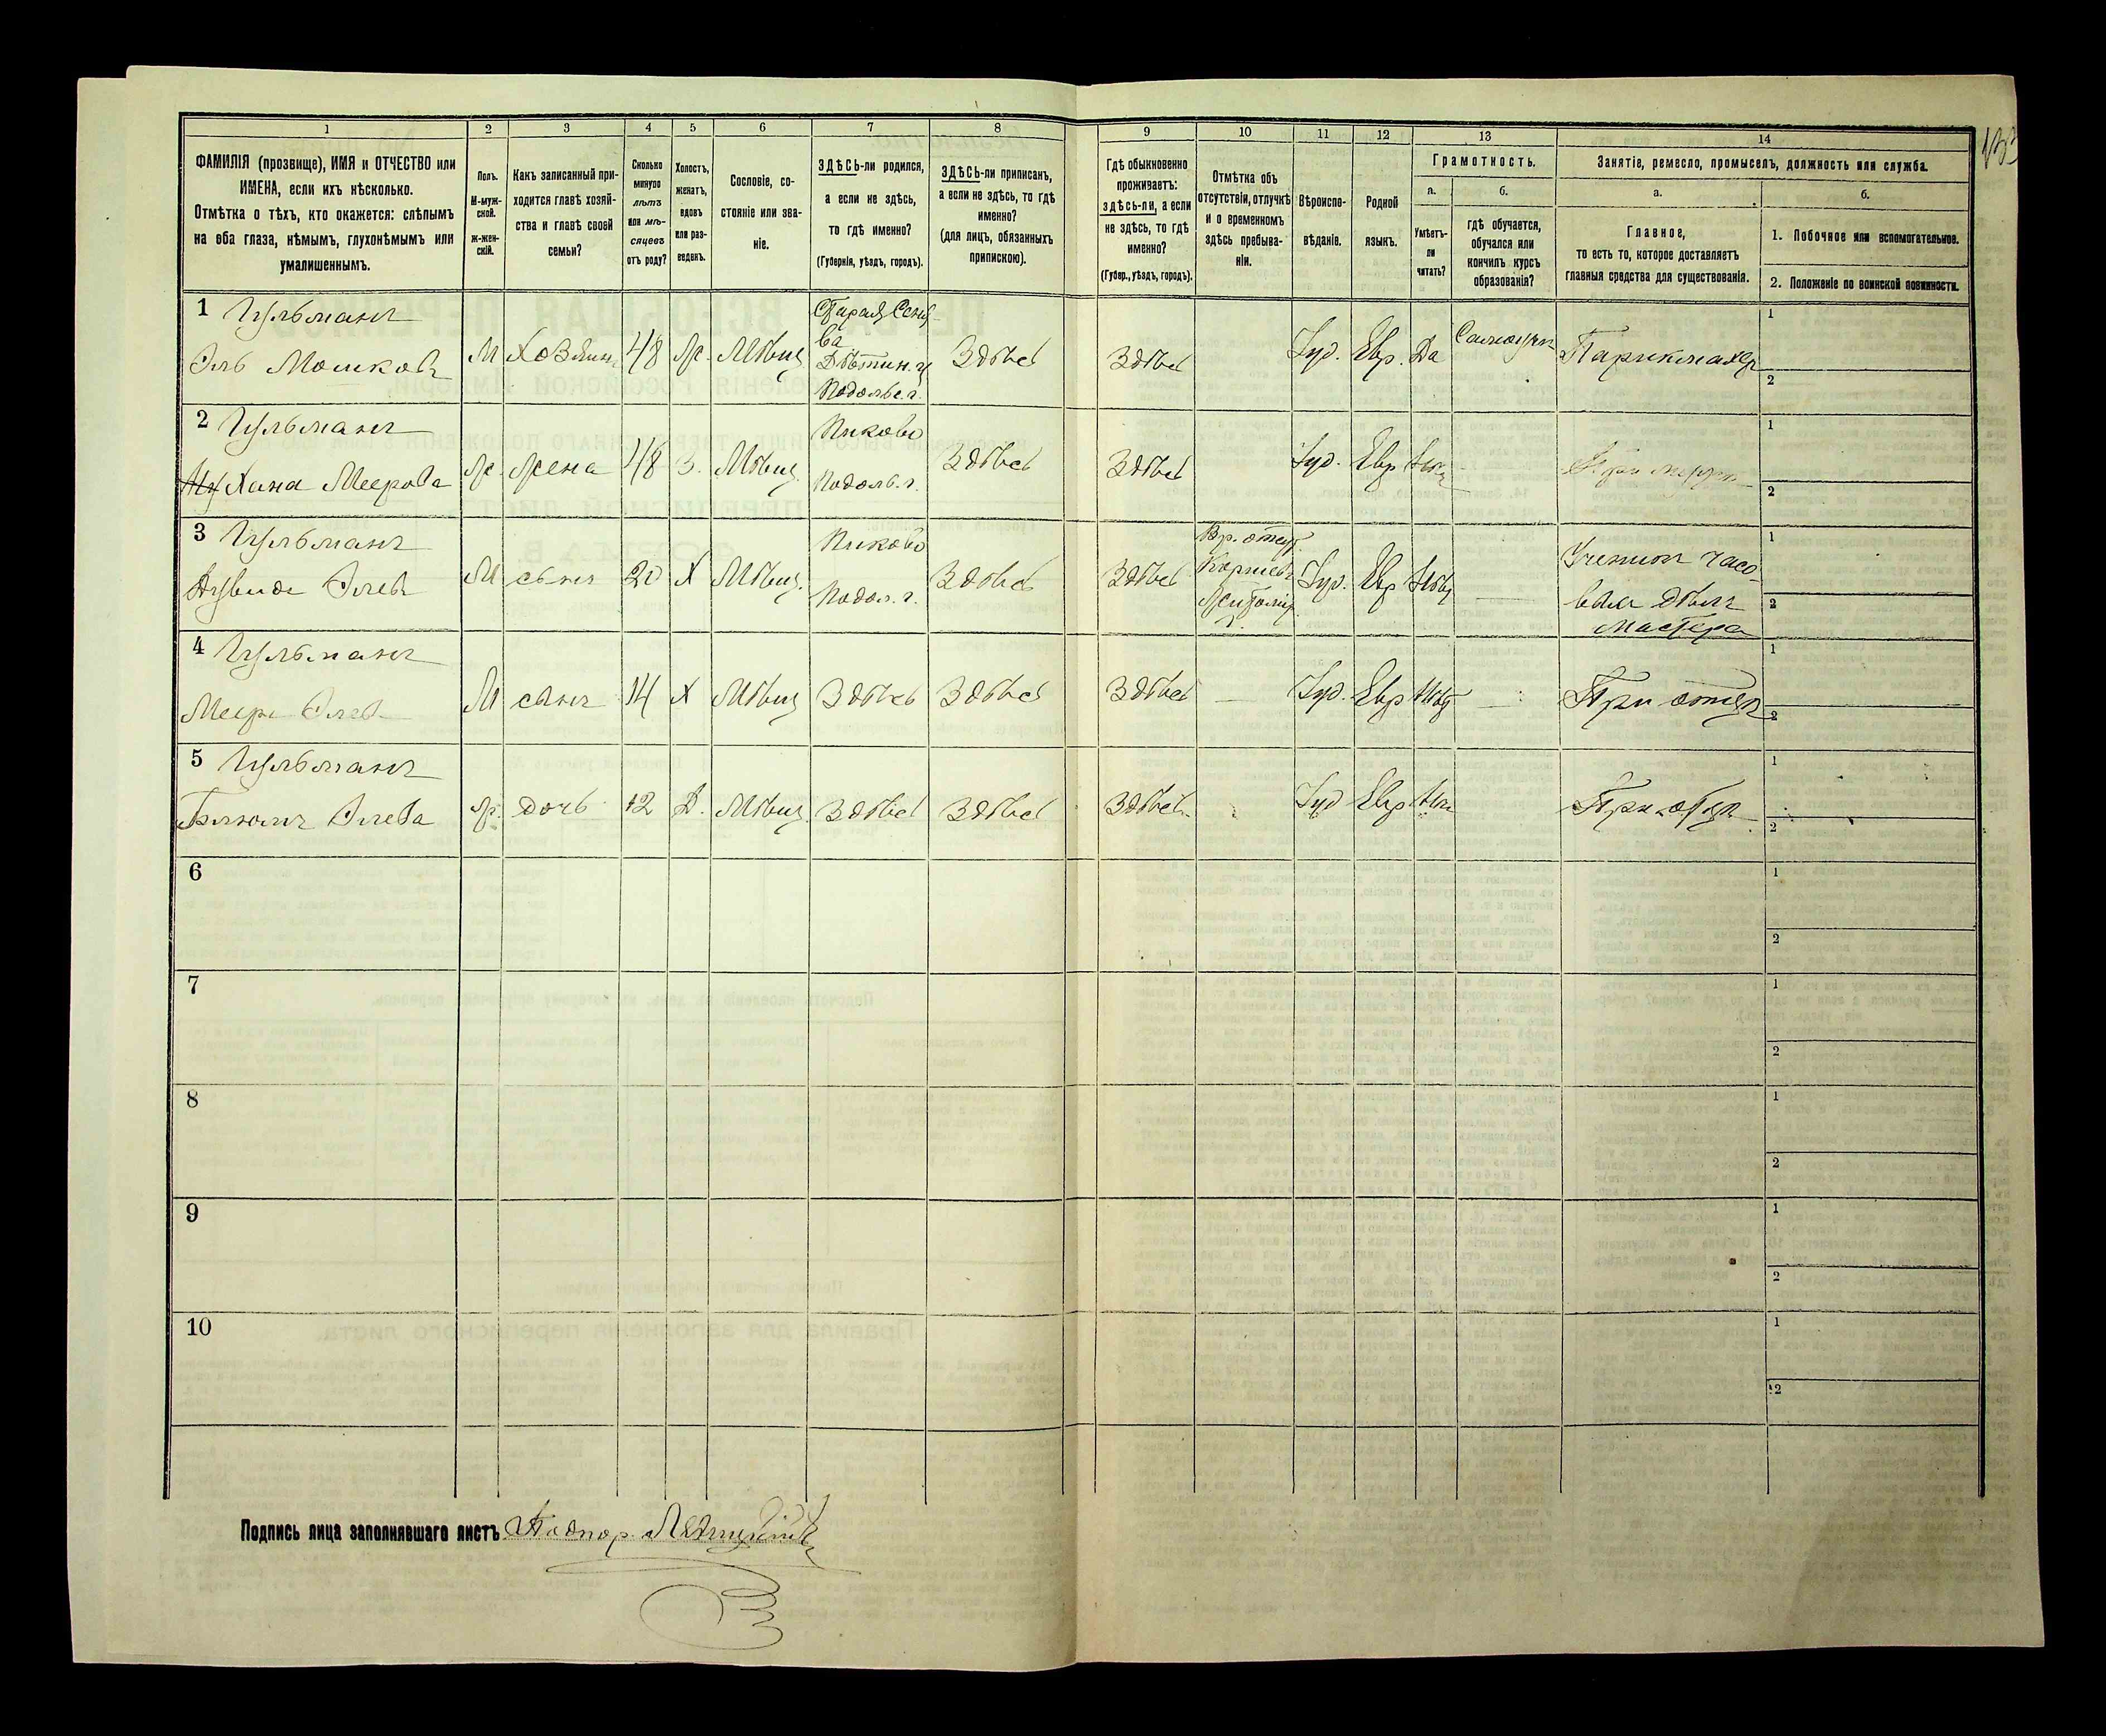 1 2 3 4 5 6 7 8 9 10 11 12 13 14
ФАМИЛІЯ (прозвище), ИМЯ и ОТЧЕСТВО или
ИМЕНА, если ихъ нѣсколько.
Отмѣтка о тѣхъ, кто окажется: слѣпымъ
на оба глаза, нѣмымъ, глухонѣмымъ или
умалишеннымъ.
Полъ.
М-муж-
ской.
Ж-жен-
скій.
Какъ записанный при-
ходится главѣ хозяй-
ства и главѣ своей
семьи?
Сколько
минуло
лѣтъ
или мѣ-
сяцевъ
отъ роду?
Холостъ,
женатъ,
вдовъ
или раз-
веденъ.
Сословіе, со-
стояніе или зва-
ніе.
ЗДѢСЬ-ли родился,
а если не здѣсь,
то гдѣ именно?
(Губернія, уѣздъ, городъ).
ЗДѢСЬ-ли приписанъ,
а если не здѣсь, то гдѣ
именно?
(для лицъ, обязанныхъ
припискою).
Гдѣ обыкновенно
проживаетъ:
здѣсь-ли, а если
не здѣсь, то гдѣ
именно?
(Губер., уѣздъ, городъ).
Отмѣтка объ
отсутствіи, отлучкѣ
и о временномъ
здѣсь пребыва-
ніи.
Вѣроиспо-
вѣданіе.
Родной
языкъ.
Грамотность.
а.
Умѣетъ-
ли
читать?
б.
гдѣ обучается,
обучался или
кончилъ курсъ
образованія?
Занятіе, ремесло, промыселъ, должность или служба.
а.
Главное,
то есть то, которое доставляетъ
главныя средства для существованія.
б.
1. Побочное или вспомогательное.
2. Положеніе по воинской повинности.
1 Гульманъ
Эль Мошковъ
М Хозяинъ 48 Ж. Мѣщ.
Старая Синя-
ва
Подольс. г.
Здѣсь Здѣсь Іуд. Евр. Да
Парикмахеръ
1
2
2 Гульманъ
Хана Меерова
Ж. жена 48 З. Мѣщ.
Пиково
Подоль. г.
Здѣсь Здѣсь Іуд. Евр
При мужѣ
1
2
3 Гульманъ
Элевъ
М сынъ 20 Х Мѣщ.
Пиково
Подол. г.
Здѣсь Здѣсь
Вр. отсут.
Іуд. Евр
Ученикъ часо-
выхъ дѣлъ
мастера
1
2
4 Гульманъ
Мееръ Элевъ
М сынъ 14 Х Мѣщ Здѣсь Здѣсь Здѣсь — Іуд. Евр
При отцѣ
1
2
5 Гульманъ
Элева
Ж. дочь 12 Д. Мѣщ. Здѣсь Здѣсь Здѣсь Іуд Евр
При отцѣ
1
2
6 1
2
7 1
2
8 1
2
9 1
2
10 1
2
Подпись лица заполнявшаго листъ